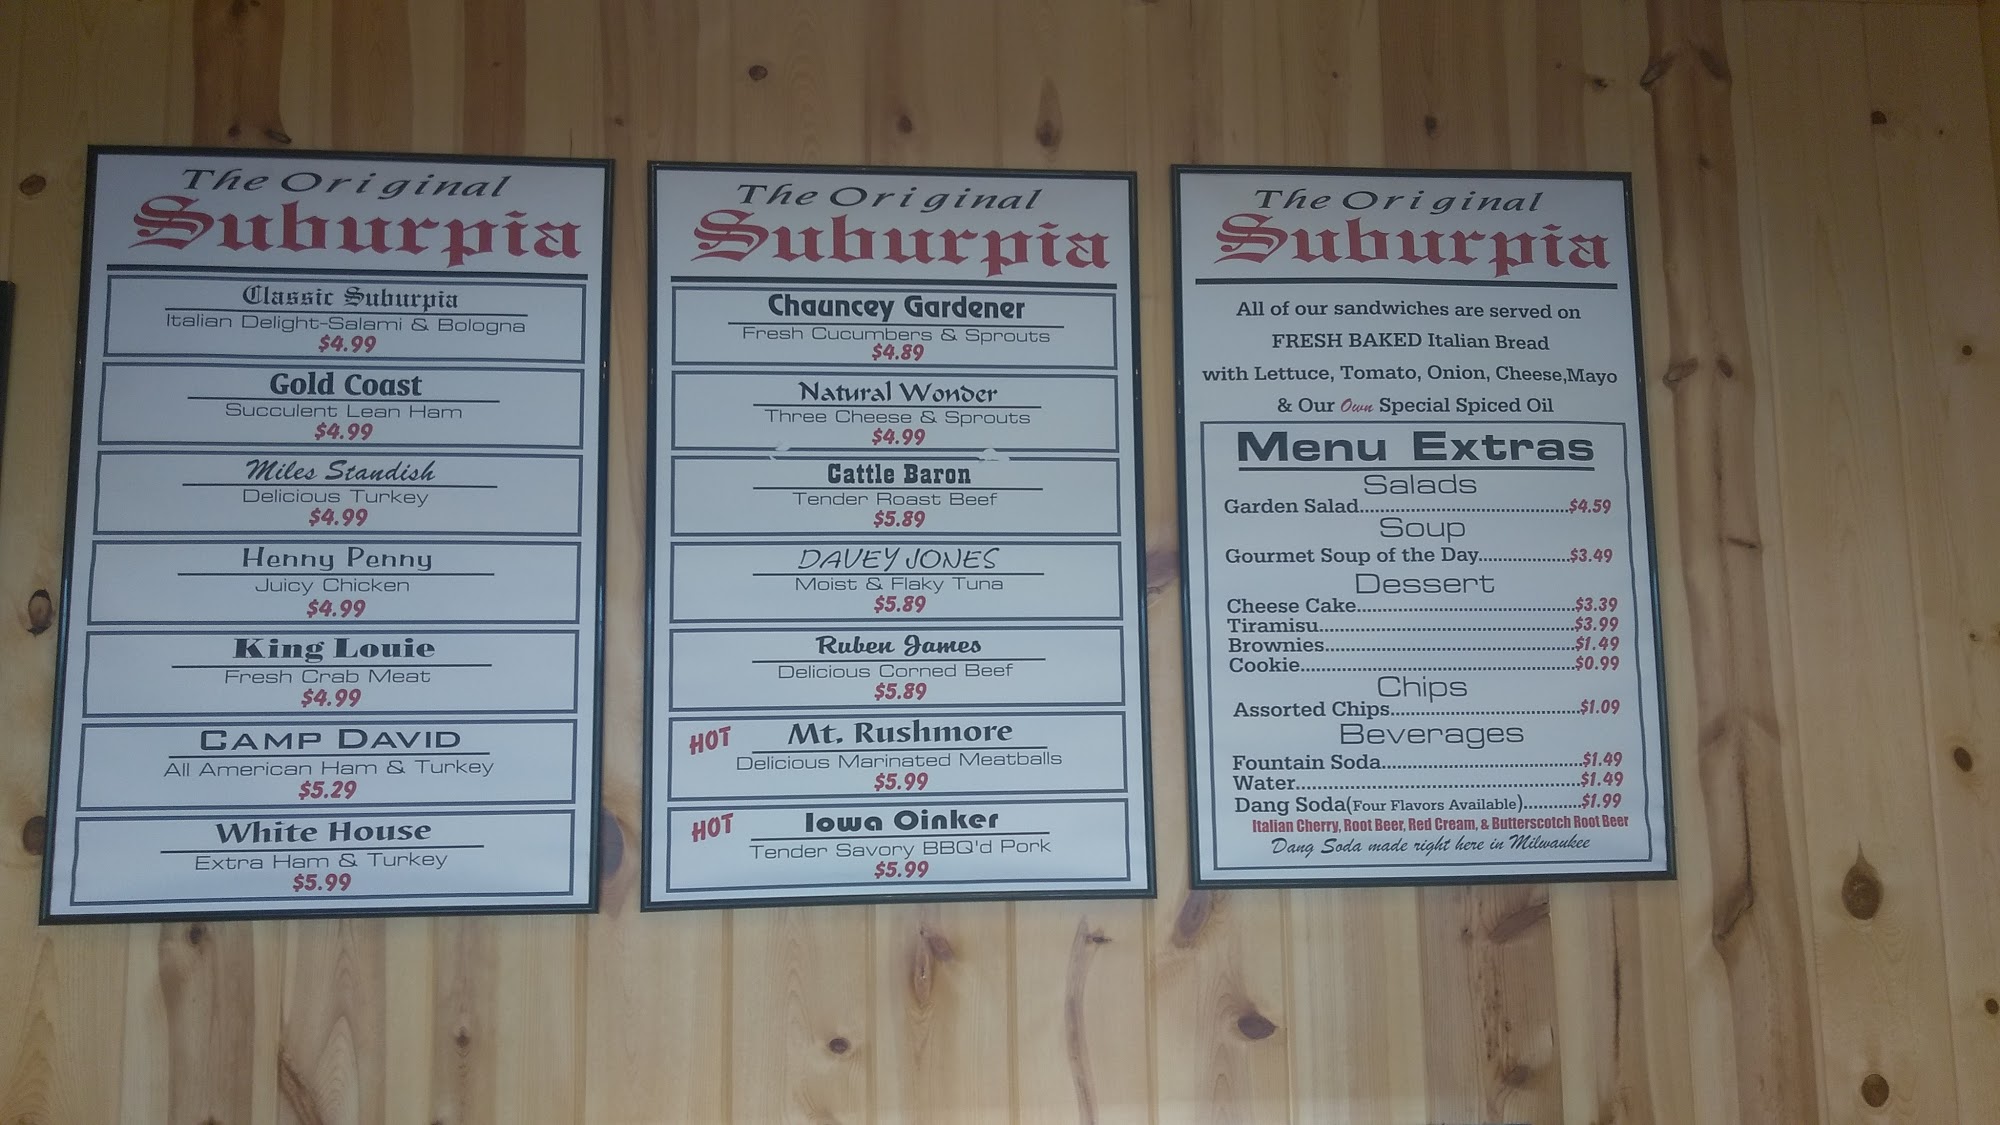 The Original
Suburpia
Classic Suburpia
Italian Delight-Salami & Bologna
$4.99
Gold Coast
Succulent Lean Ham
$4.99
Miles Standish
Delicious Turkey
$4.99
Henny Penny
Juicy Chicken
$4.99
King Louie
Fresh Crab Meat
$4.99
CAMP DAVID
All American Ham & Turkey
$5.29
White House
Extra Ham & Turkey
$5.99
The Original
Suburpia
Chauncey Gardener
Fresh Cucumbers & Sprouts
$4.89
Natural Wonder
Three Cheese & Sprouts
$4.99
Cattle Baron
Tender Roast Beef
$5.89
DAVEY JONES
Moist & Flaky Tuna
$5.89
Ruben James
Delicious Corned Beef
$5.89
HOT Mt. Rushmore
Delicious Marinated Meatballs
$5.99
HOT Iowa Oinker
Tender Savory BBQ'd Pork
$5.99
The Original
Suburpia
All of our sandwiches are served on
FRESH BAKED Italian Bread
with Lettuce, Tomato, Onion, Cheese,Mayo
& Our Own Special Spiced Oil
Menu Extras
Salads
Garden Salad....................................$4.59
Soup
Gourmet Soup of the Day................$3.49
Dessert
Cheese Cake......................................$3.39
Tiramisu............................................$3.99
Brownies...........................................$1.49
Cookie................................................$0.99
Chips
Assorted Chips.................................$1.09
Beverages
Fountain Soda...................................$1.49
Water.................................................$1.49
Dang Soda(Four Flavors Available)..........$1.99
Italian Cherry, Root Beer, Red Cream, & Butterscotch Root Beer
Dang Soda made right here in Milwaukee